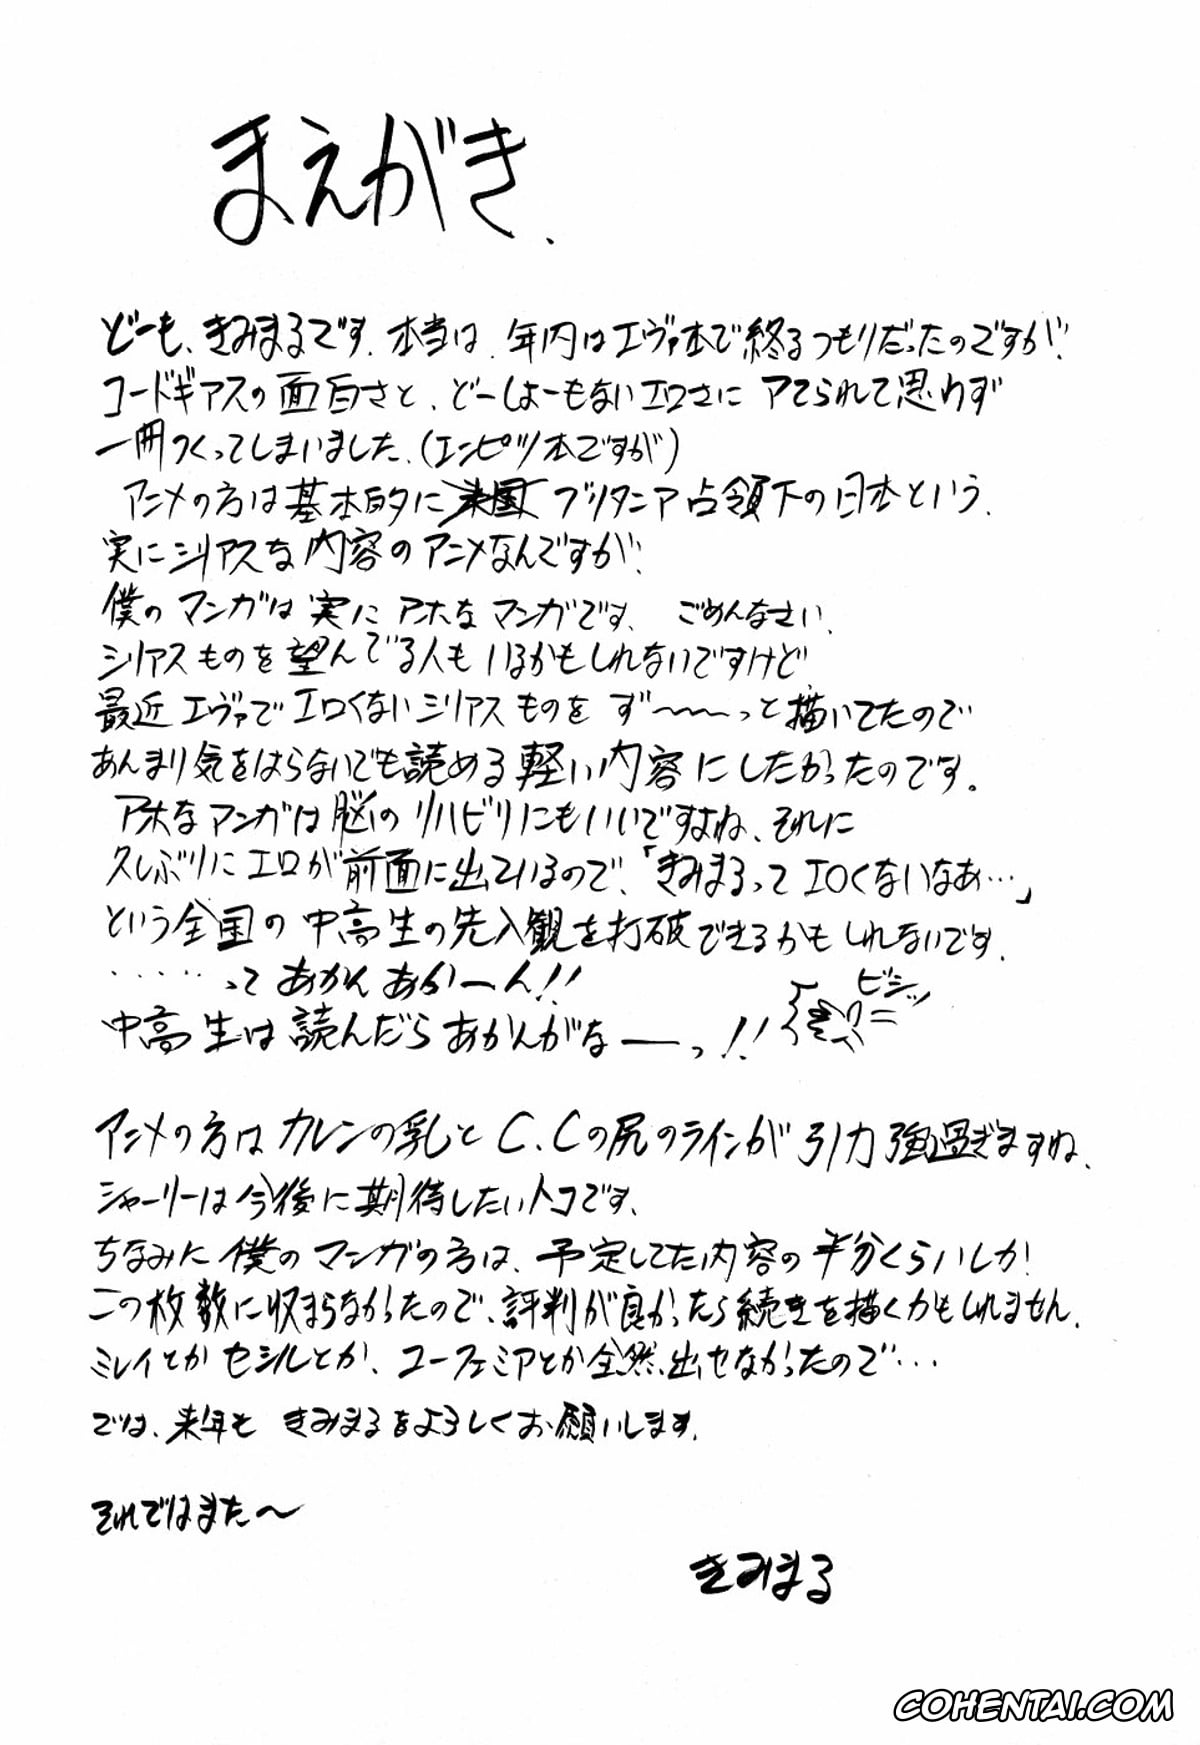 まえがき.
どーも、きみまるです。本当は、年内はエヴァ本で終るつもりだったのですが、
コードギアスの面白さと、どーしょーもないエロさにアてられて思わず
一冊つくってしまいました。(エンピツ本ですが)
アニメの方は基本的に米国ブリタニア占領下の日本という、
実にシリアスな内容のアニメなんですが、
僕のマンガは実にアホなマンガです、ごめんなさい、
シリアスものを望んでる人もいるかもしれないですけど
最近エヴァでエロくないシリアスものをず〜〜〜っと描いてたので
あんまり気をはらないでも読める軽い内容にしたかったのです。
アホなマンガは脳のリハビリにもいいですよね、それに
久しぶりにエロが前面に出ているので、「きみまるってエロくないなぁ…」
という全国の中高生の先入観を打破できるかもしれないです。
……ってあかんあかーん!!
ビシッ
中高生は読んだらあかんがなーっ!!
アニメの方はカレンの乳とC.Cの尻のラインが引力強過ぎますね、
シャーリーは今後に期待したいトコです、
ちなみに僕のマンガの方は、予定してた内容の半分くらいしか
この枚数に収まらなかったので、評判が良かったら続きを描くかもしれません。
ミレイとかセシルとか、ユーフェミアとか全然出せなかったので…
では、来年もきみまるをよろしくお願いします。
それではまた〜
きみまる
COHENTAI.COM